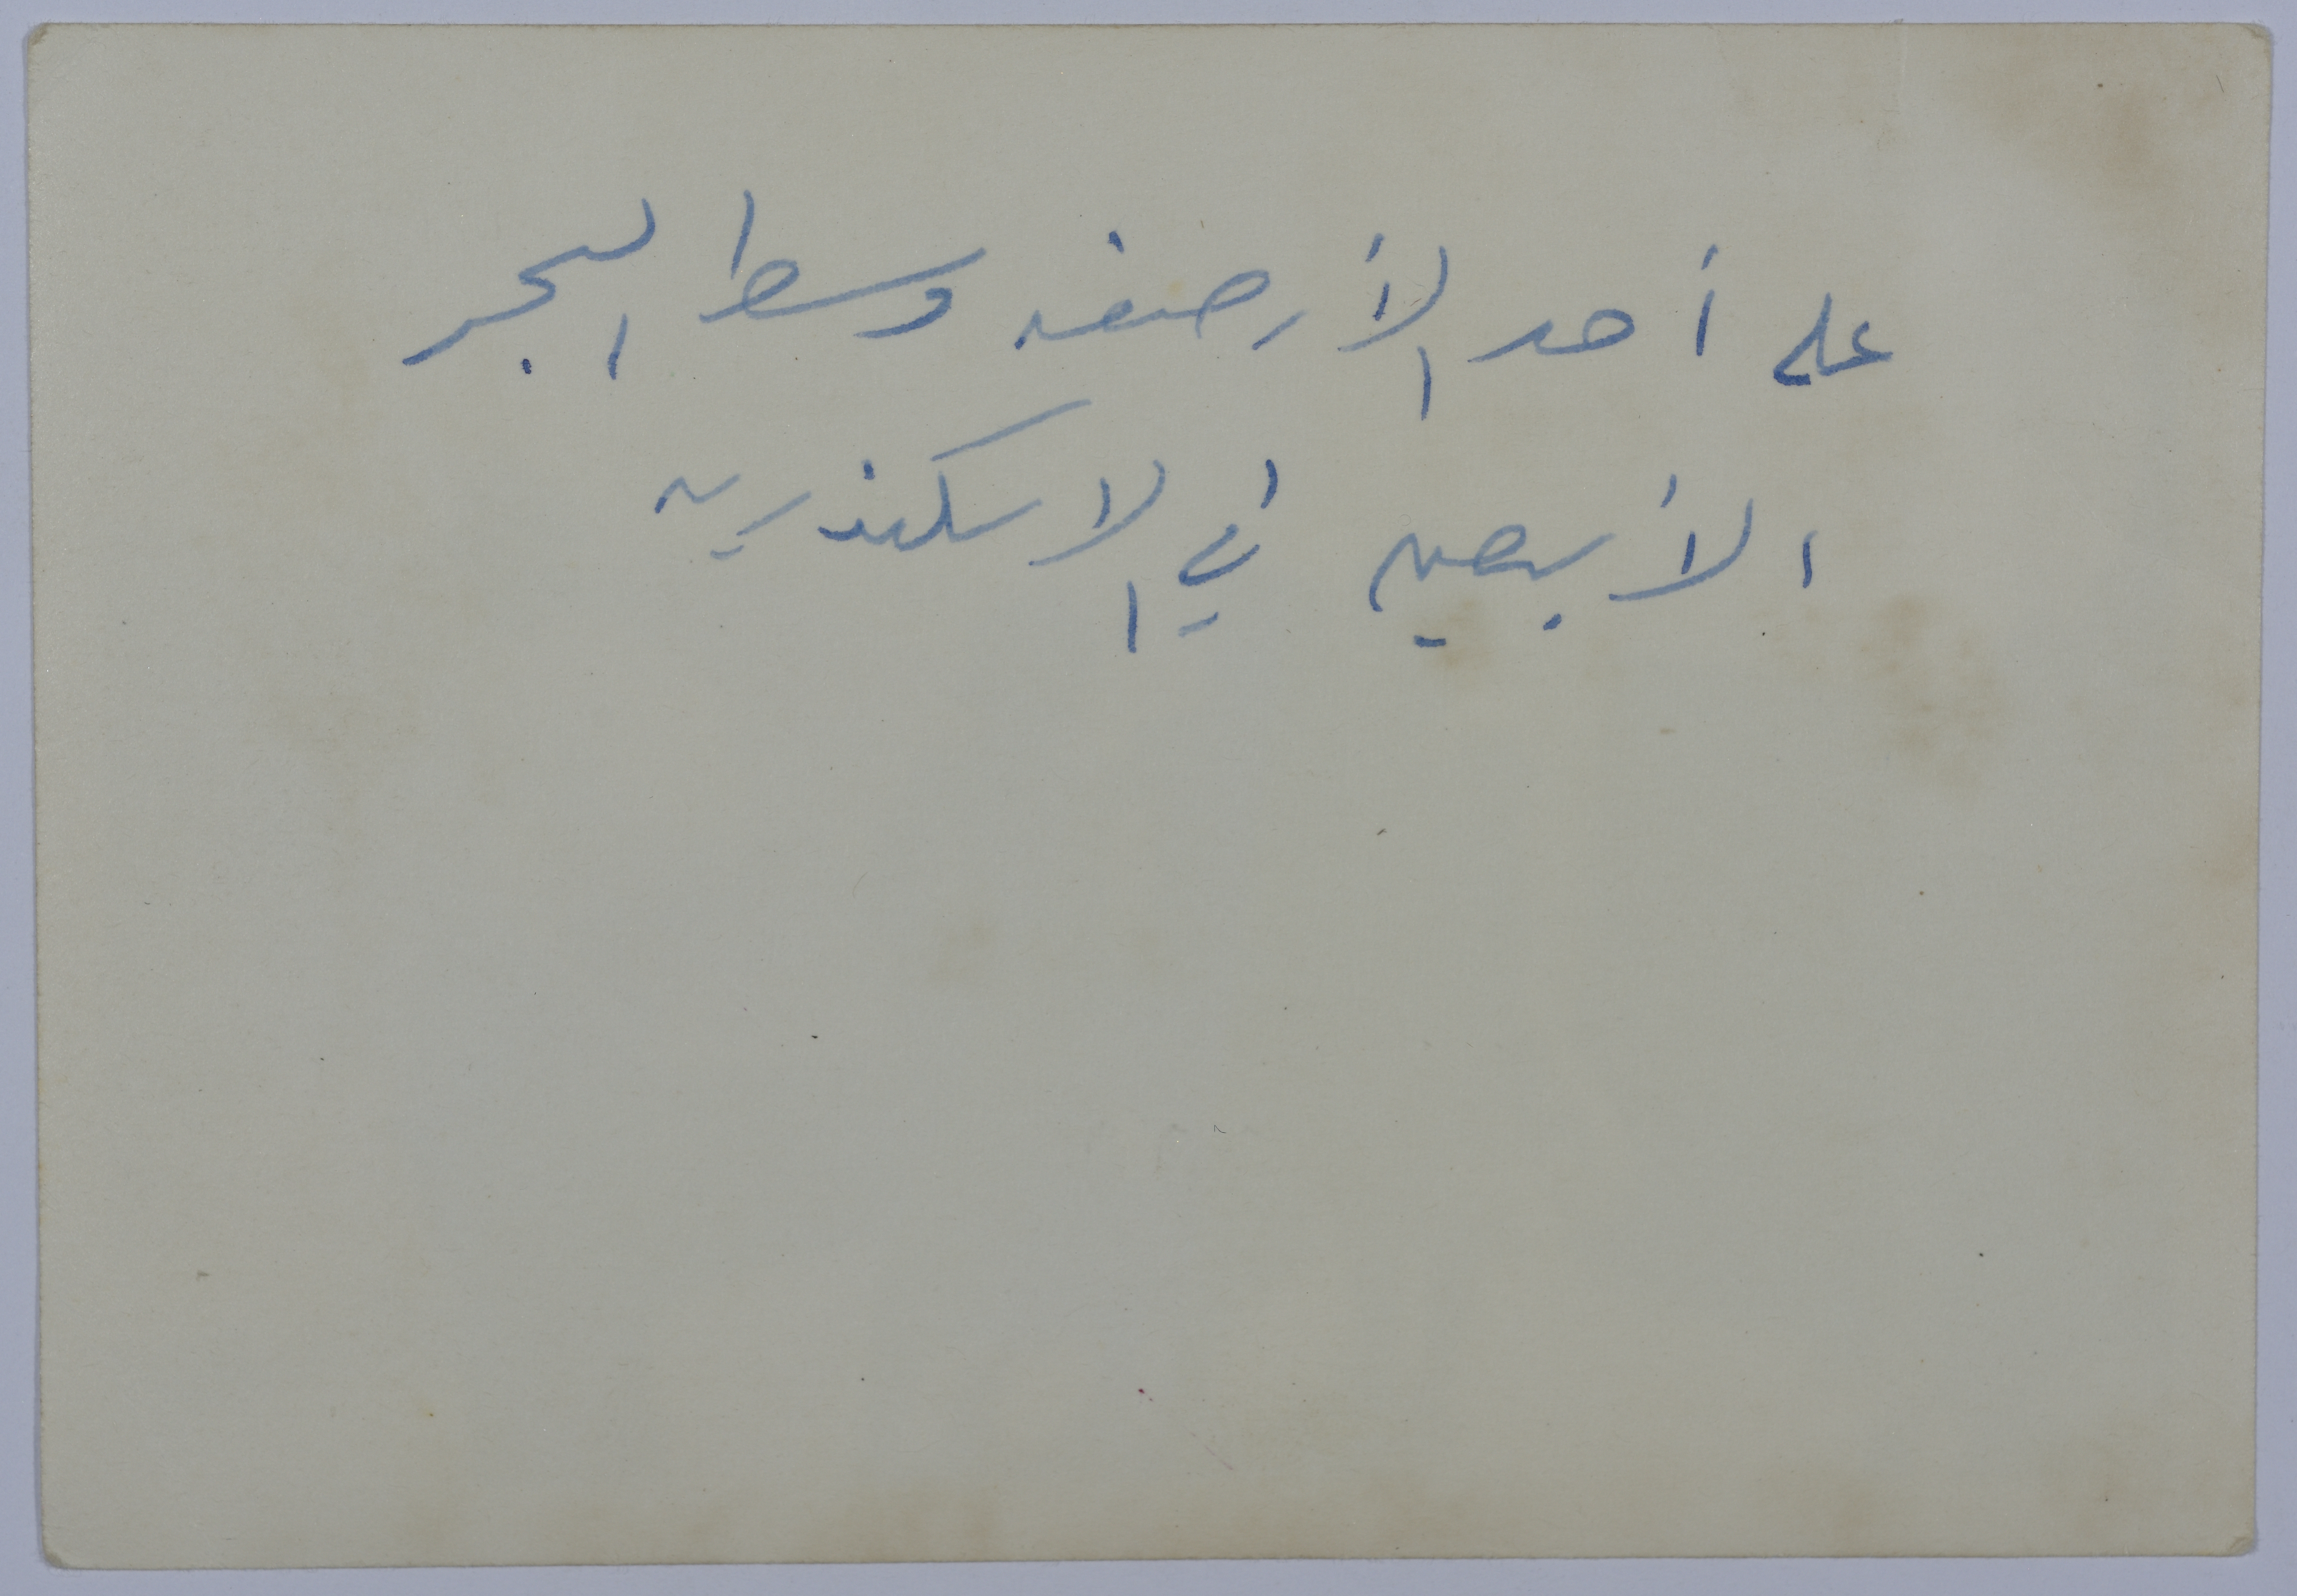 على أحد الأرصفه وسط البحر
الأبيض في الاسكندريه